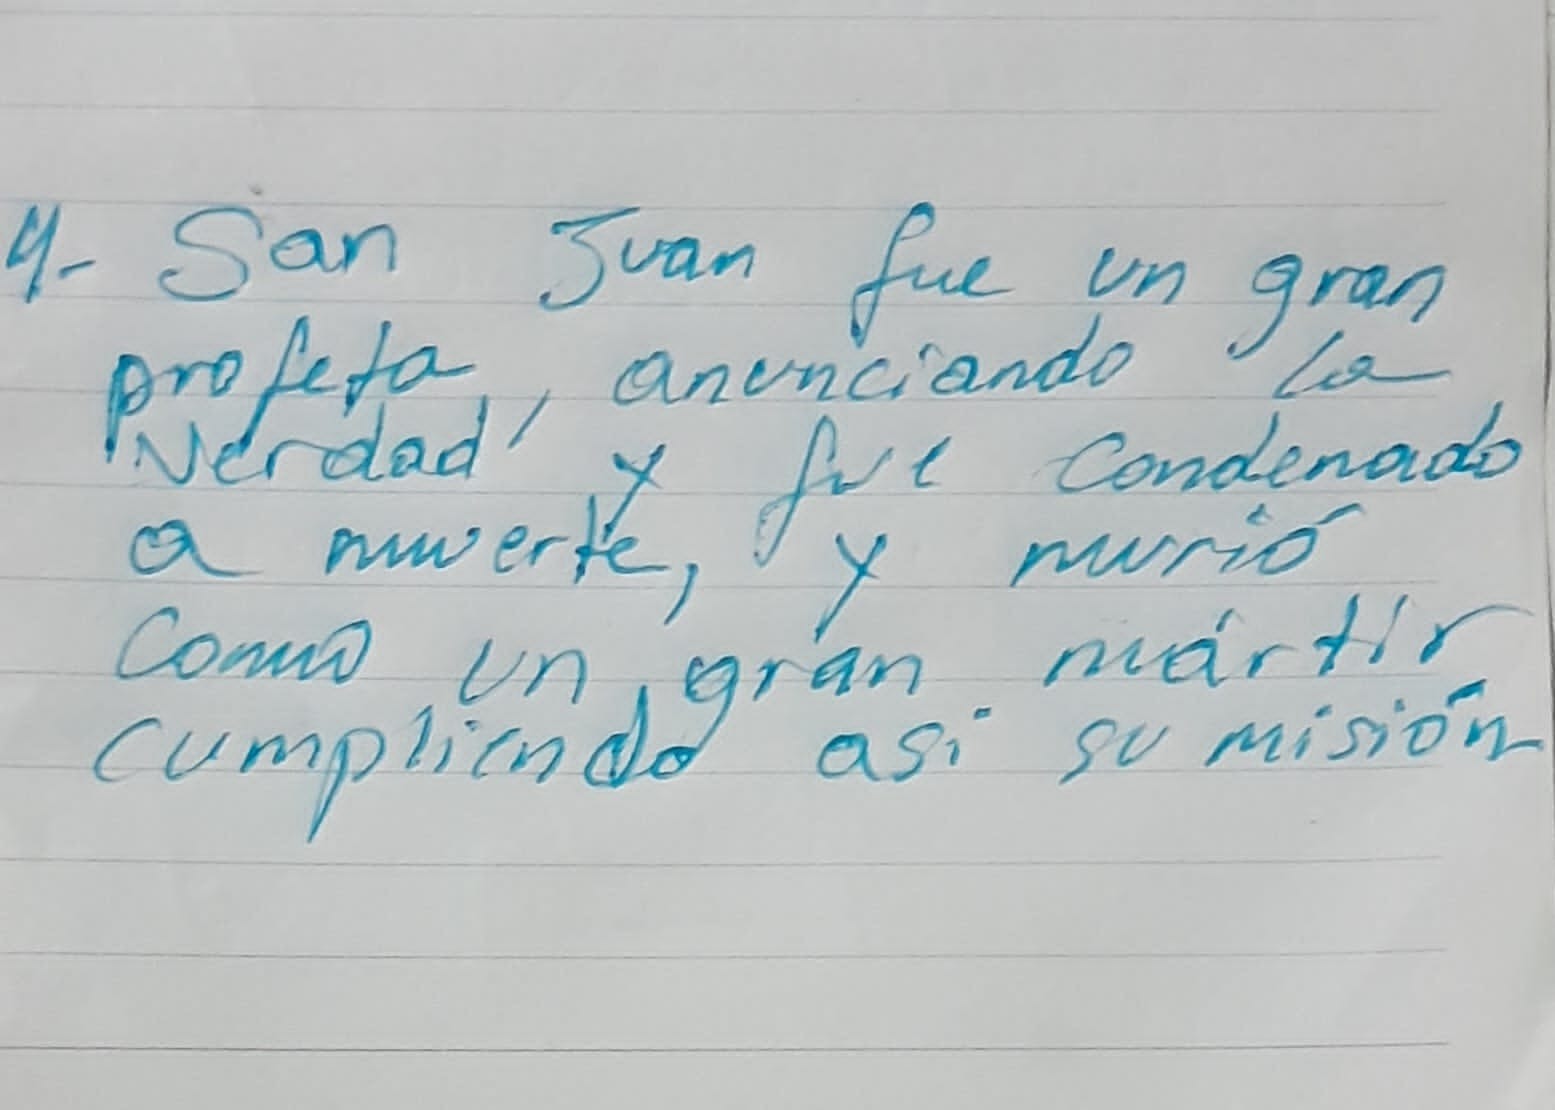 4- San Juan fue un gran
profeta, anunciando la
verdad, y fue condenado
a muerte, y murió
como un gran mártir
cumpliendo así su misión